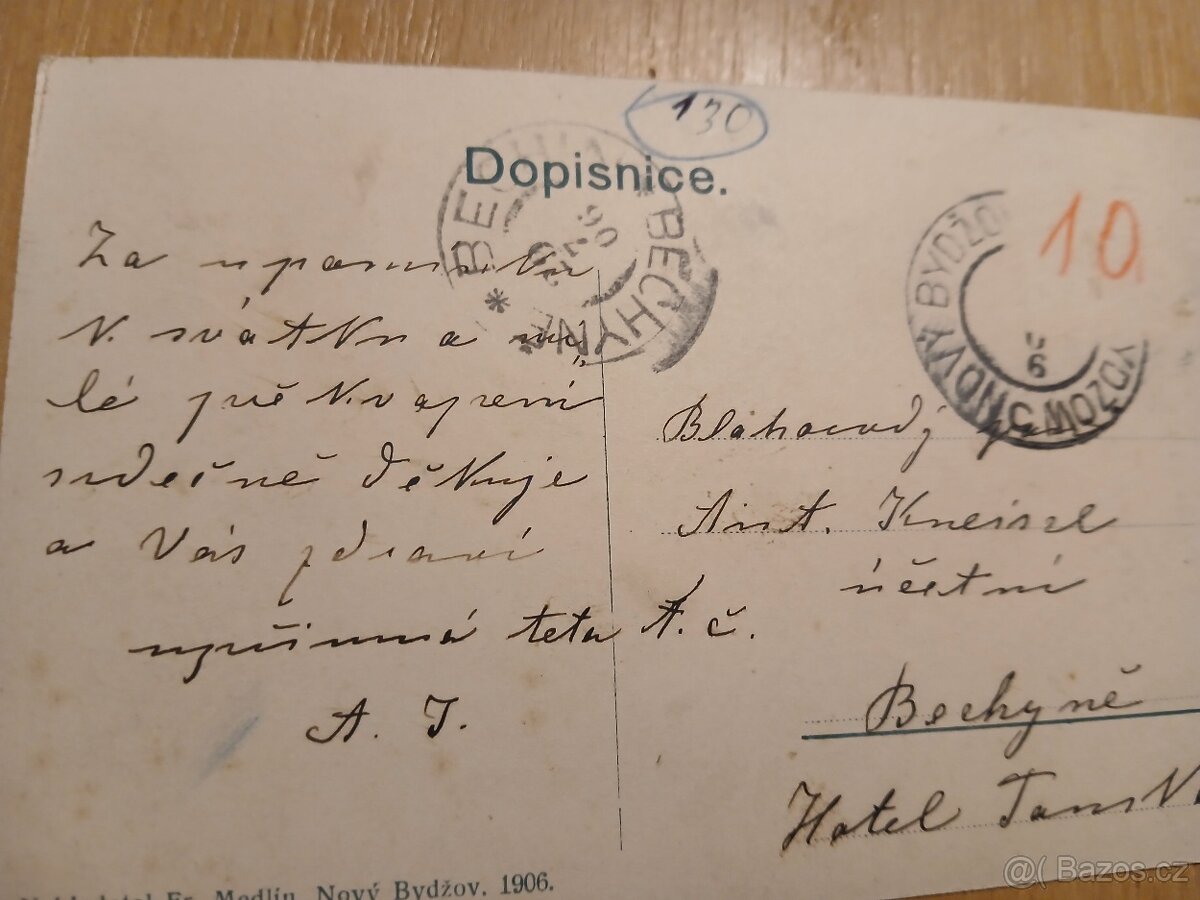 130
Dopisnice.
BECHYNĚ * BECHYNĚ *
NOVÝ BYDŽOV
10
6
Za upomínku
k svátku a mi„
lé překvapení
srdečně děkuje
a Vás zdraví
upřímná teta A. č.
A. J.
Blahorodý pan
Ant. Kneissl
účetní
Bechyně
Hotel
Fr. Modlín, Nový Bydžov. 1906.
@( Bazos.cz